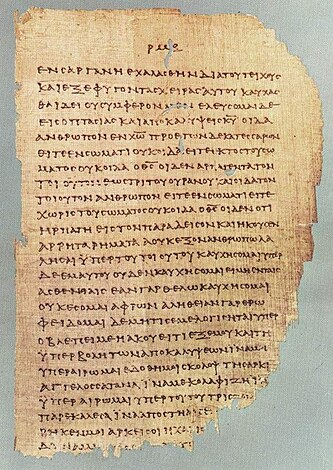 ΕΝ ΣΑΡΓΑΝΗ ΕΧΑΛΑΣΘΗΝ ΔΙΑ ΤΟΥ ΤΕΙΧΟΥΣ
ΚΑΙ ΕΞΕΦΥΓΟΝ ΤΑΣ ΧΕΙΡΑΣ ΑΥΤΟΥ ΚΑΥΧΑΣ
ΘΑΙ ΔΕΙ ΟΥ ΣΥΜΦΕΡΟΝ ΜΕΝ ΕΛΕΥΣΟΜΑΙ ΔΕ
ΕΙΣ ΟΠΤΑΣΙΑΣ ΚΑΙ ΑΠΟΚΑΛΥΨΕΙΣ ΚΥ ΟΙΔΑ
ΑΝΘΡΩΠΟΝ ΕΝ ΧΩ ΠΡΟ ΕΤΩΝ ΔΕΚΑΤΕΣΣΑΡΩΝ
ΕΙΤΕ ΕΝ ΣΩΜΑΤΙ ΟΥΚ ΟΙΔΑ ΕΙΤΕ ΕΚΤΟΣ ΤΟΥ ΣΩ
ΜΑΤΟΣ ΟΥΚ ΟΙΔΑ Ο ΘΣ ΟΙΔΕΝ ΑΡΠΑΓΕΝΤΑ ΤΟΝ
ΤΟΙΟΥΤΟΝ ΕΩΣ ΤΡΙΤΟΥ ΟΥΡΑΝΟΥ ΚΑΙ ΟΙΔΑ ΤΟΝ
ΤΟΙΟΥΤΟΝ ΑΝΘΡΩΠΟΝ ΕΙΤΕ ΕΝ ΣΩΜΑΤΙ ΕΙΤΕ
ΧΩΡΙΣ ΤΟΥ ΣΩΜΑΤΟΣ ΟΥΚ ΟΙΔΑ Ο ΘΣ ΟΙΔΕΝ ΟΤΙ
ΗΡΠΑΓΗ ΕΙΣ ΤΟΝ ΠΑΡΑΔΕΙΣΟΝ ΚΑΙ ΗΚΟΥΣΕΝ
ΑΡΡΗΤΑ ΡΗΜΑΤΑ Α ΟΥΚ ΕΞΟΝ ΑΝΘΡΩΠΩ ΛΑ
ΛΗΣΑΙ ΥΠΕΡ ΤΟΥ ΤΟΙΟΥΤΟΥ ΚΑΥΧΗΣΟΜΑΙ ΥΠΕΡ
ΔΕ ΕΜΑΥΤΟΥ ΟΥΔΕΝ ΚΑΥΧΗΣΟΜΑΙ ΕΙ ΜΗ ΕΝ ΤΑΙΣ
ΑΣΘΕΝΕΙΑΙΣ ΕΑΝ ΓΑΡ ΘΕΛΩ ΚΑΥΧΗΣΟΜΑΙ
ΟΥΚ ΕΣΟΜΑΙ ΑΦΡΩΝ ΑΛΗΘΕΙΑΝ ΓΑΡ ΕΡΩ
ΦΕΙΔΟΜΑΙ ΔΕ ΜΗ ΤΙΣ ΕΜΕ ΛΟΓΙΣΗΤΑΙ ΥΠΕΡ
Ο ΒΛΕΠΕΙ ΜΕ Η ΑΚΟΥΕΙ ΤΙ ΕΞ ΕΜΟΥ ΚΑΙ ΤΗ
ΥΠΕΡΒΟΛΗ ΤΩΝ ΑΠΟΚΑΛΥΨΕΩΝ ΙΝΑ ΜΗ
ΥΠΕΡΑΙΡΩΜΑΙ ΕΔΟΘΗ ΜΟΙ ΣΚΟΛΟΨ ΤΗ ΣΑΡΚΙ
ΑΓΓΕΛΟΣ ΣΑΤΑΝΑ ΙΝΑ ΜΕ ΚΟΛΑΦΙΖΗ ΙΝΑ
ΥΠΕΡΑΙΡΩΜΑΙ ΥΠΕΡ ΤΟΥΤΟΥ ΤΡΙΣ
ΠΑΡΕΚΑΛΕΣΑ ΙΝΑ ΑΠΟΣΤΗ
ΡΗΚΕΝ ΜΟΙ ΑΡΚΕΙ ΣΟΙ Η ΧΑΡΙΣ